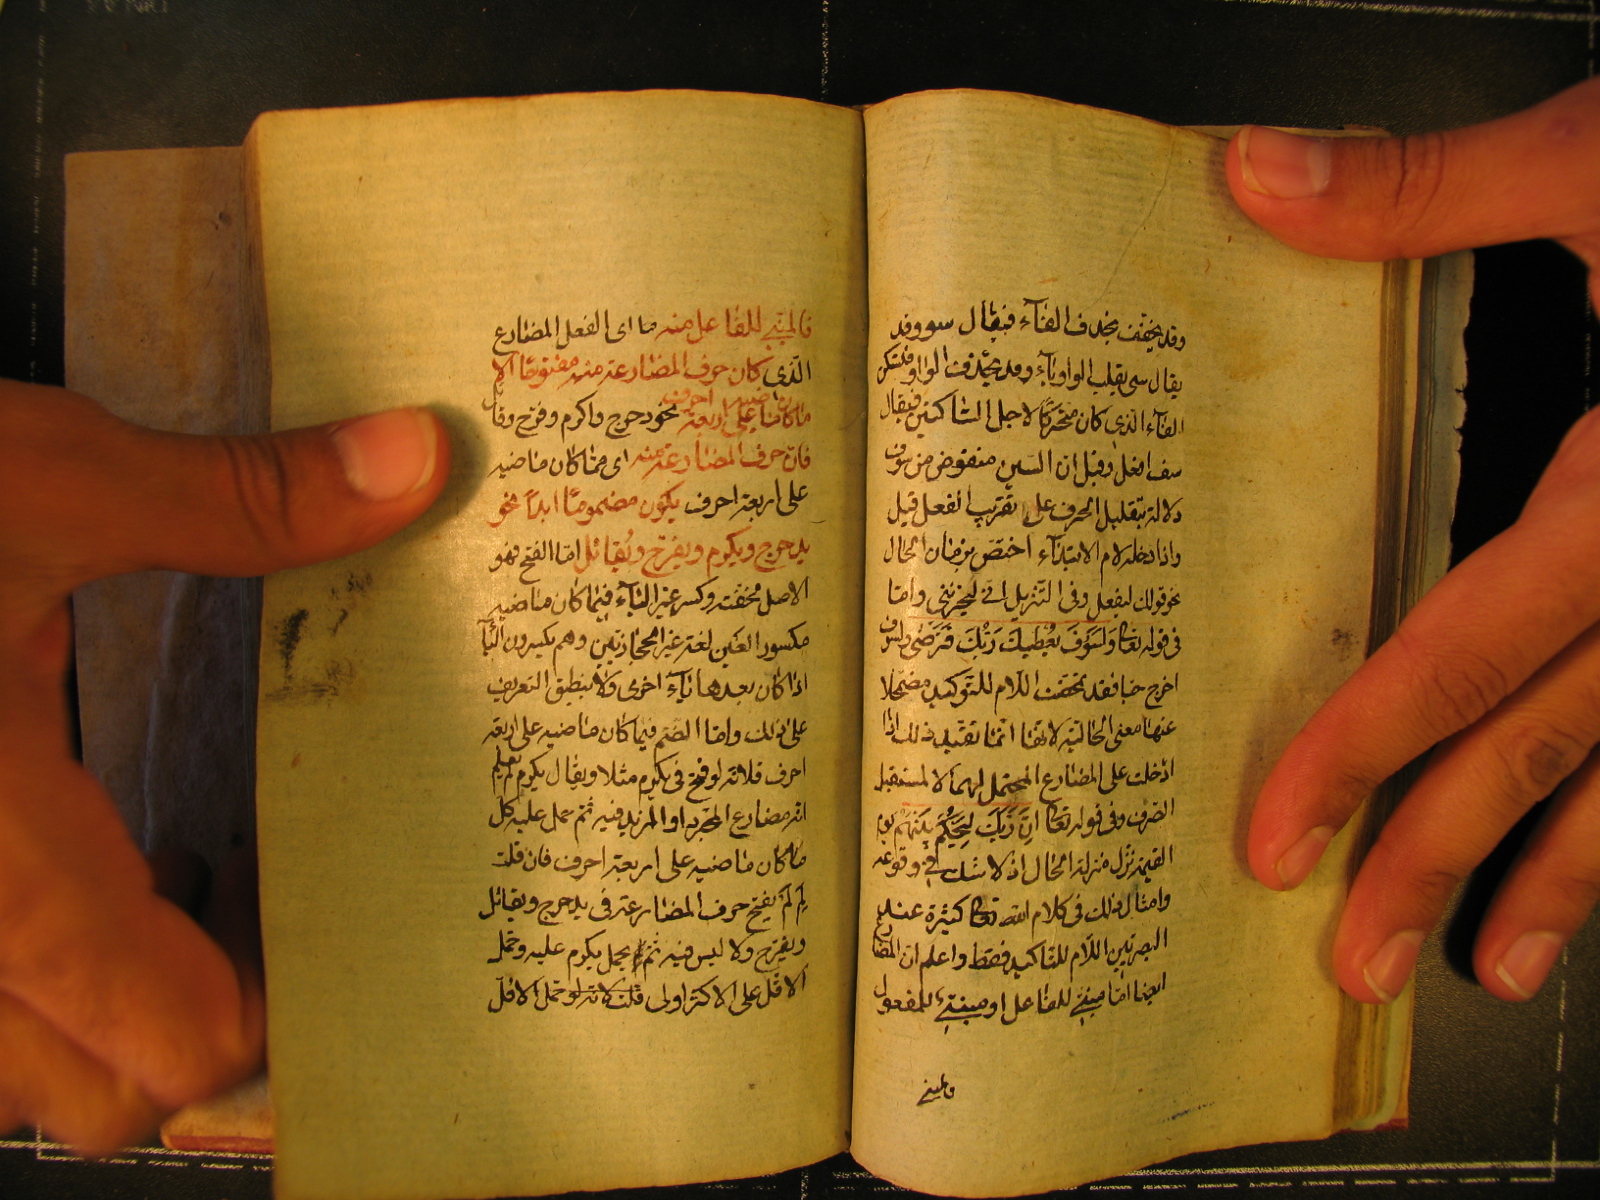 وقد يخفف بحذف الفاء فيقال سو وقد
يقال سى بقلب الواو ياء وقد يحذف الواو فتسكن
الفاء الذى كان متحركا لاجل الساكنين فيقال
سف افعل وقيل ان السين منقوص من سوف
دلالة بتقليل الحرف على تقريب الفعل قيل
واذا دخله لام الابتداء اختص بزمان الحال
نحو قولك ليفعل وفى التنزيل انى ليحزننى واما
فى قوله تعالى ولسوف يعطيك ربك فترضى ولسوف
اخرج حيا فقد تمحضت اللام للتوكيد مضمحلا
عنها معنى الحالية لانها انما تفيد ذلك اذا
ادخلت على المضارع المحتمل لهما لا لمستقبل
الصرف وفى قوله تعالى ان ربك ليحكم بينهم يوم
القيمة نزل منزلة الحال اذ لا شك فى وقوعه
وامثال ذلك فى كلام الله تعالى كثيرة عند
البصريين اللام للتأكيد فقط واعلم ان المضارع
ايضا اما مبنى للفاعل او مبنى للمفعول
فالمبنى
فالمبنى للفاعل منه ما اى الفعل المضارع
الذى كان حرف المضارعة منه مفتوحا الا
ما كان ماضيه على اربعة احرف نحو دحرج واكرم وفرح وقاتل
فان حرف المضارعة منه اى مما كان ماضيه
على اربعة احرف يكون مضموما ابدا نحو
يدحرج ويكرم ويفرح ويقاتل اما الفتح فهو
الاصل لخفته وكسر غير الياء فيما كان ماضيه
مكسور العين لغة غير الحجازيين وهم يكسرون الياء
اذا كان بعدها ياء اخرى ولا ينطبق التعريف
على ذلك واما الضم فيما كان ماضيه على اربعة
احرف فلانه لو فتح فى يكرم مثلا ويقال يكرم لم يعلم
انه مضارع المجرد او المزيد فيه ثم حمل عليه كل
ما كان ماضيه على اربعة احرف فان قلت
لم لم يفتح حرف المضارعة فى يدحرج ويقاتل
ويفرح ولا لبس فيه ثم يحمل يكرم عليه وحمل
الاقل على الاكثر اولى قلت لانه لو حمل الاقل